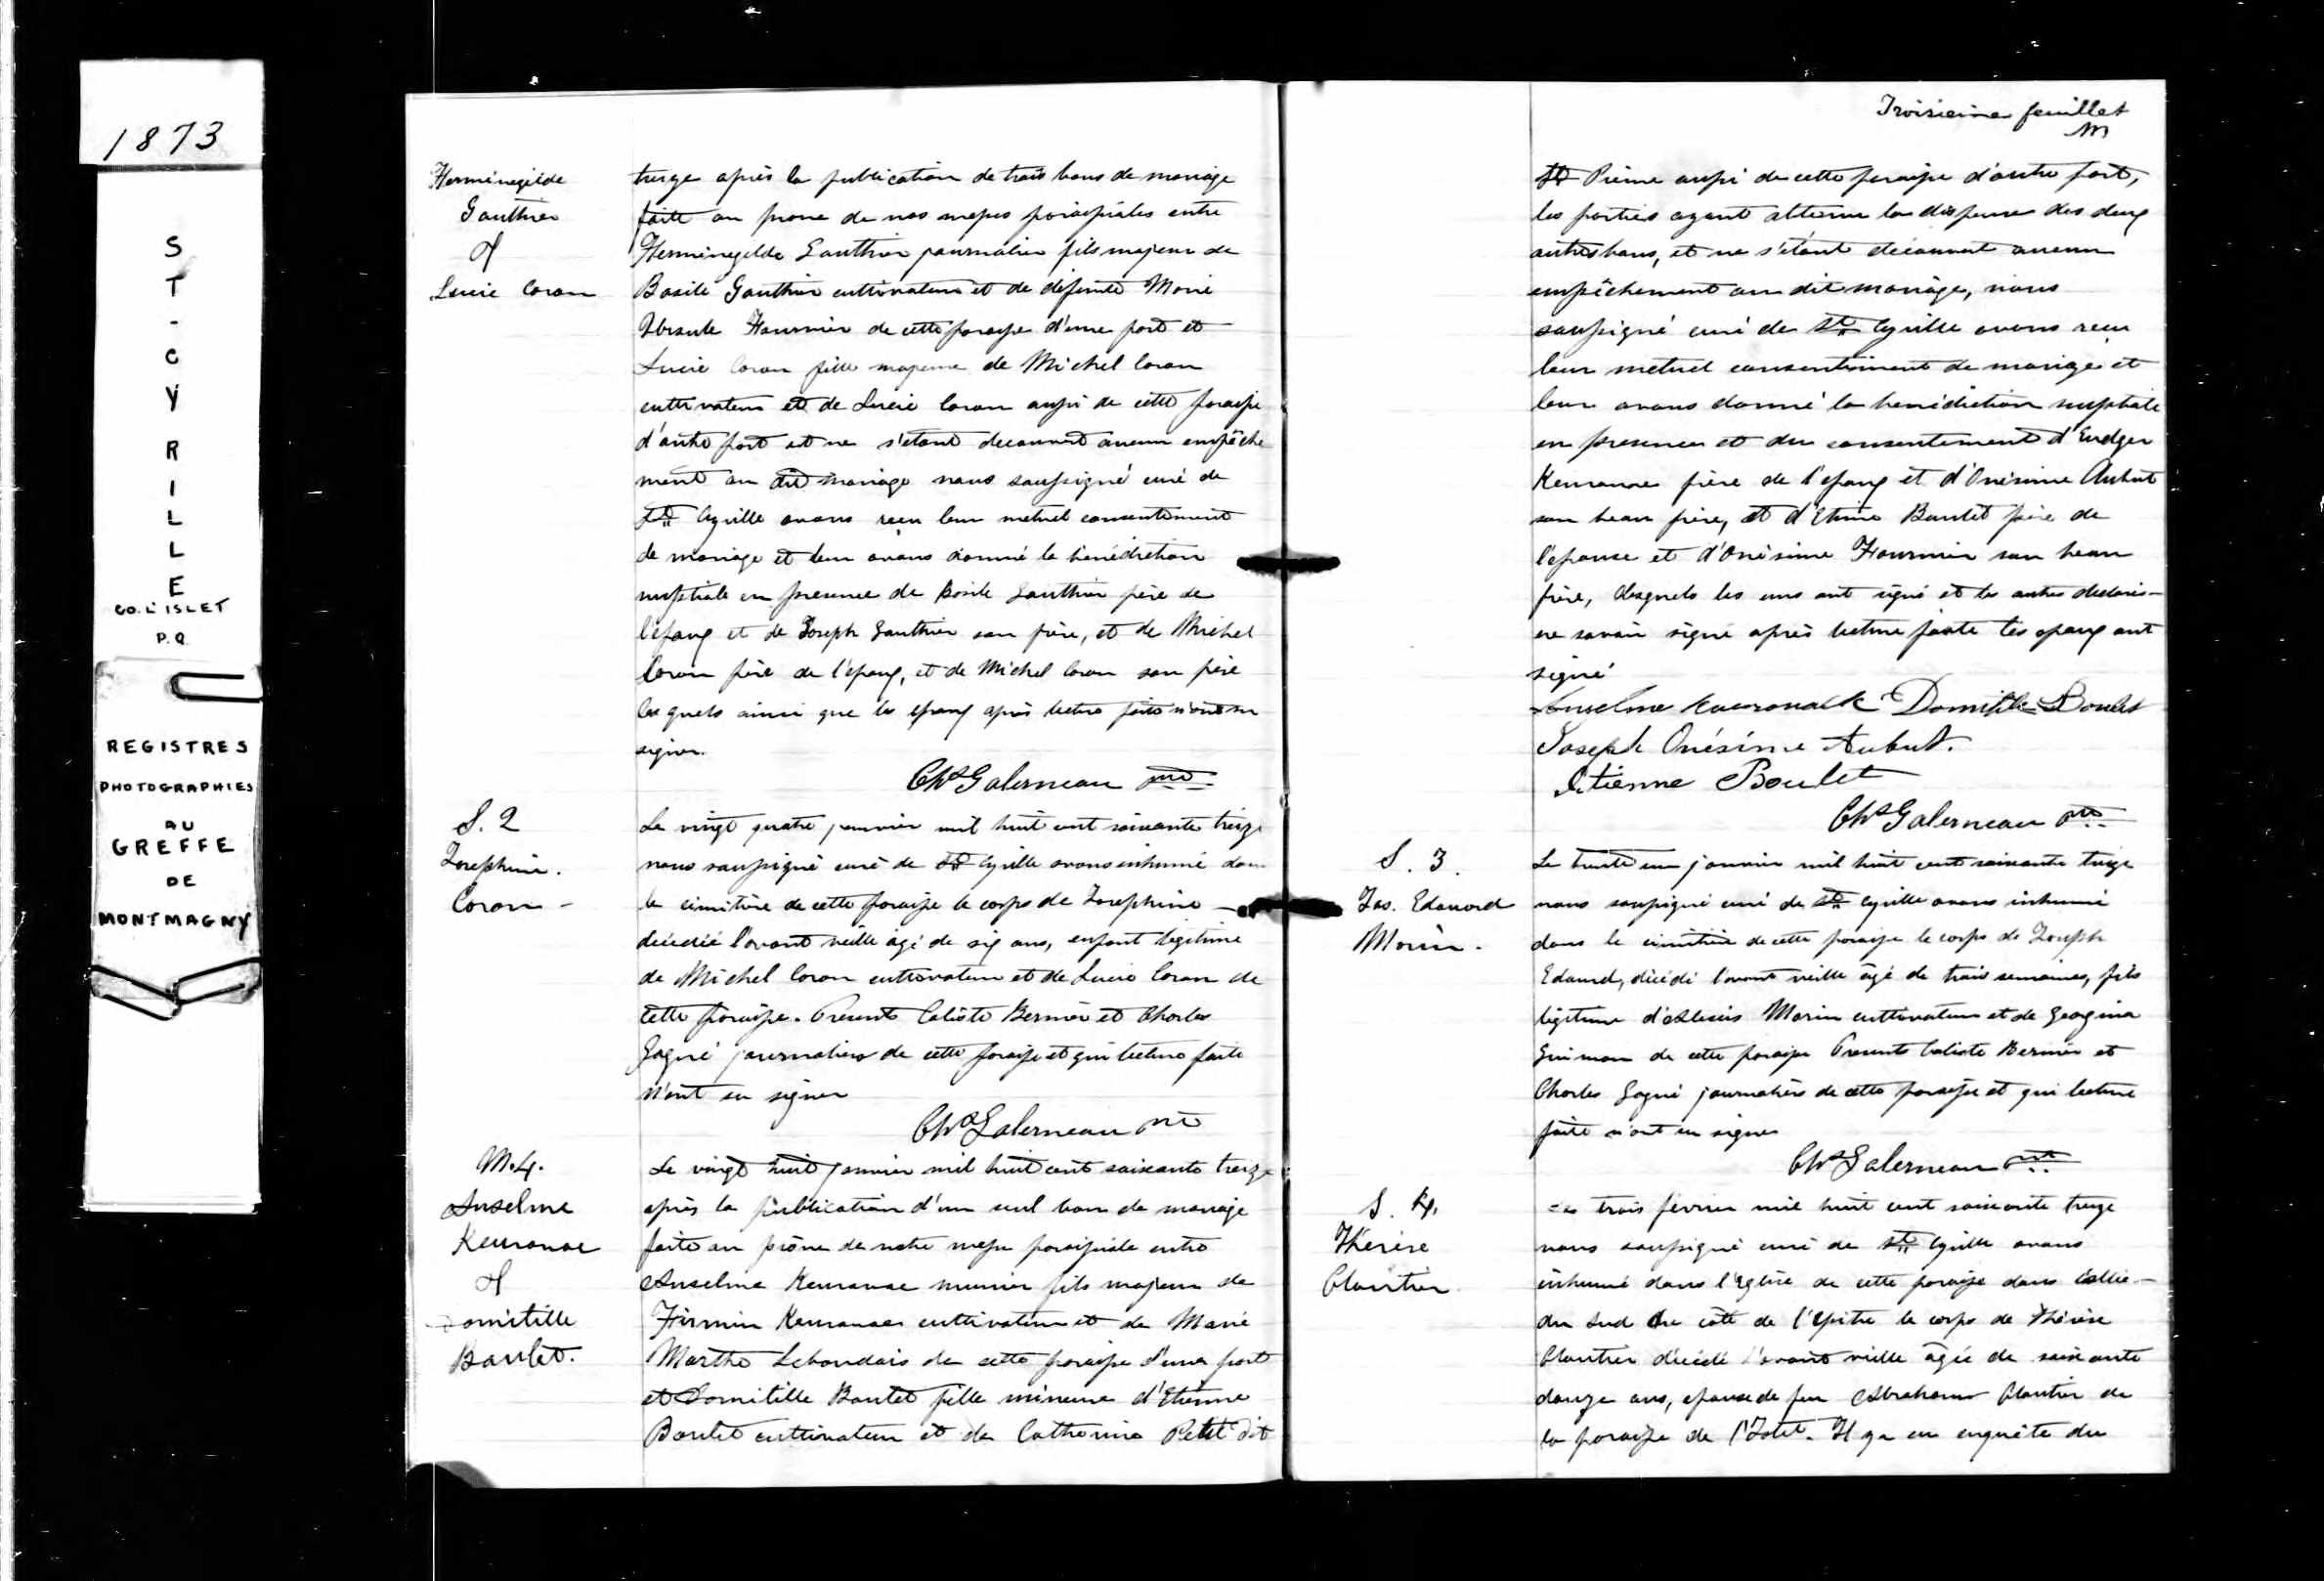 1873
ST-CYRILLE
CO. L'ISLET
P.Q.
REGISTRES
PHOTOGRAPHIES
AU
GREFFE
DE
MONTMAGNY
Herménegilde
Gauthier
&
Lucie Caron
treize après la publication de trois bans de mariage
faite au prone de nos messes paroissiales entre
Herménegilde Gauthier journalier fils majeur de
Basile Gauthier cultivateur et de défunte Marie
Ursule Fournier de cette paroisse d'une part et
Lucie Caron fille majeure de Michel Caron
cultivateur et de Lucie Caron aussi de cette paroisse
d'autre part et ne s'étant decouvert aucun empêche
ment au dit mariage nous soussigné curé de
St Cyrille avons reçu leur mutuel consentement
de mariage et leur avons donné la bénédiction
nuptiale en presence de Basile Gauthier père de
l'epoux et de Joseph Gauthier son frère, et de Michel
Caron père de l'epouse, et de Michel Caron son frère
lesquels ainsi que les epoux après lecture faite n'ont su
signer.
Chs Galerneau ptre
S. 2
Josephine.
Caron -
Le vingt quatre janvier mil huit cent soixante treize
nous soussigné curé de St Cyrille avons inhumé dans
le cimitière de cette paroisse le corps de Josephine
décédée l'avant veille âgé de six ans, enfant légitime
de Michel Caron cultivateur et de Lucie Caron de
cette paroisse. Presents Caliste Bernier et Charles
Gagné journaliers de cette paroisse et qui lecture faite
n'ont su signer
Chs Galerneau ptre
M.4.
Anselme
Keurouac
&
Domitille
Boulet.
Le vingt huit janvier mil huit cent soixante treize
après la publication d'un seul ban de mariage
faite au prône de notre messe paroissiale entre
Anselme Keurouac meunier fils majeur de
Firmin Keurouac cultivateur et de Marie
Marthe Lebourdais de cette paroisse d'une part
et Domitille Boulet fille mineure d'Etienne
Boulet cultivateur et de Catherine Petit dit
Troisieme feuillet
St Pierre aussi de cette paroisse d'autre part,
les parties ayant obtenu la dispense des deux
autres bans, et ne s'étant découvert aucun
empêchement au dit mariage, nous
soussigné curé de St Cyrille avons reçu
leur mutuel consentement de mariage et
leur avons donné la benédiction nuptiale
en presence et du consentement d'
Keurouac frère de l'epoux et d'Onésime Aubut
son beau frère, et d'Etienne Boulet père de
l'épouse et d'Onésime Fournier son beau
frère, desquels les uns ont signé et les autres declarés
ne savoir signé après lecture faite les epoux ont
signé
Anselme Domitille Boulet
Joseph Onésime Aubut.
Etienne Boulet
Chs Galerneau ptre
S. 3.
Jos. Edouard
Morin.
Le trente un janvier mil huit cent soixante treize
nous soussigné curé de St Cyrille avons inhumé
dans le cimitière de cette paroisse le corps de Joseph
Edouard, décédé l'avant veille âgé de trois semaines, fils
légitime d'Alexis Morin cultivateur et de Georgina
Guimon de cette paroisse Presents Caliste Bernier et
Charles Gagné journaliers de cette paroisse et qui lecture
faite n'ont su signer
Chs Galerneau ptre
S. 4.
Thérèse
Cloutier
Le trois fevrier mil huit cent soixante treize
nous soussigné curé de St Cyrille avons
inhumé dans l'Eglise de cette paroisse dans l'allée
du Sud du côté de l'Epitre le corps de Thérèse
Cloutier décédé l'avant veille âgée de soixante
douze ans, epouse de feu Abraham Cloutier de
la paroisse de l'Islet. Il y a eu enquête du